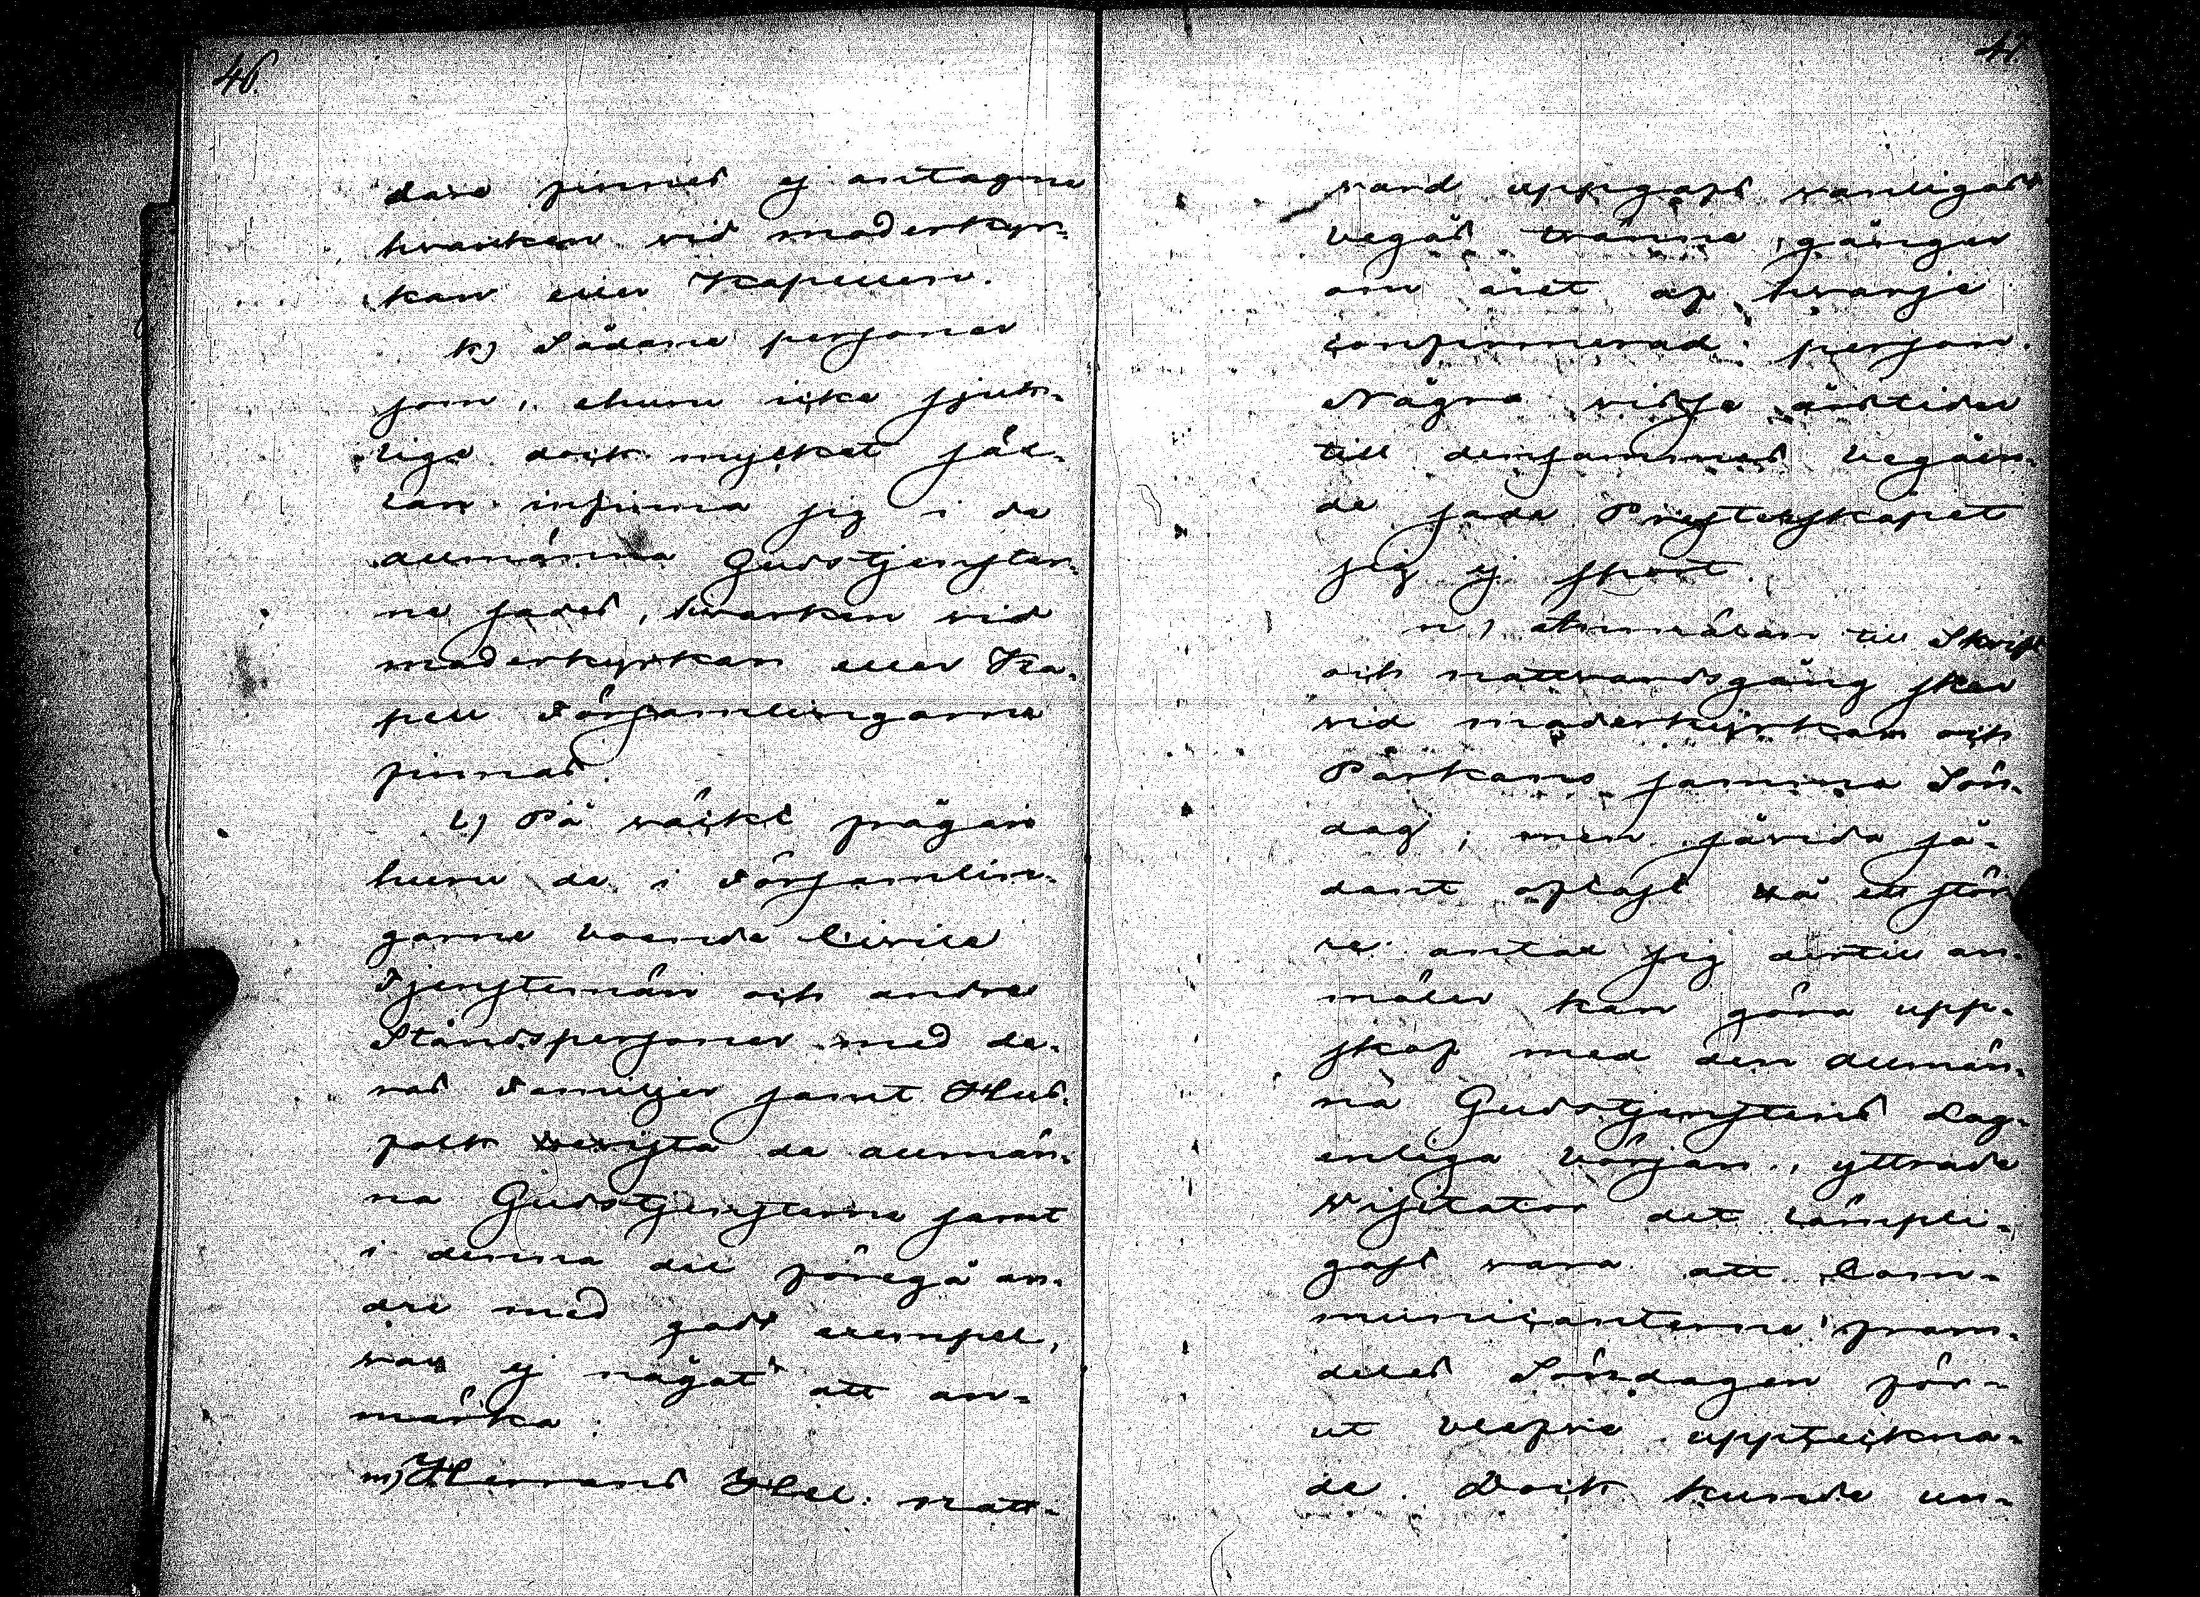 46.
dane finnes ej antagne
hwarken vid moderkyr-
kan eller Kapellen.
k) Sådane personer
som, ehuru icke sjuk-
lige dock mycket säl-
lan infinna sig i de
allmänna Gudstjenster-
ne sades, hwarken vid
moderkyrkan eller Ka-
pell Församlingarne
finnas.
l) På väckt frågan
huru de i Församlin-
garne boende Civile
Tjenstemän och andre
Ståndspersoner med de-
ras Familjer samt Hus-
folk bevista de allmän-
na Gudstjensterne samt
i denna del föregå an-
dre med godt exempel,
var ej något att an-
märka.
m) Herrans Hel. natt-
47.
vard uppgafs vanligast
begås tränne gånger
om året af hvarje
confirmerad person.
Några vissa årstider
till densammas begåen-
de sade Presterskapet
sig ej sport.
n) Anmälan till Skrift
och nattvardsgång sker
vid moderkyrkan och
Parkano samma Sön-
dag; men sävida så-
dant oftast då ett stör-
re antal sig dertill an-
mäler kan göra upp-
skof med den allmän-
na Gudstjenstens Lag-
enliga början, yttrade
Visitator det lämpli-
gast vara att Com-
municanterne fram-
deles Söndagen för-
ut blefve uppteckna-
de. Dock kunde un-